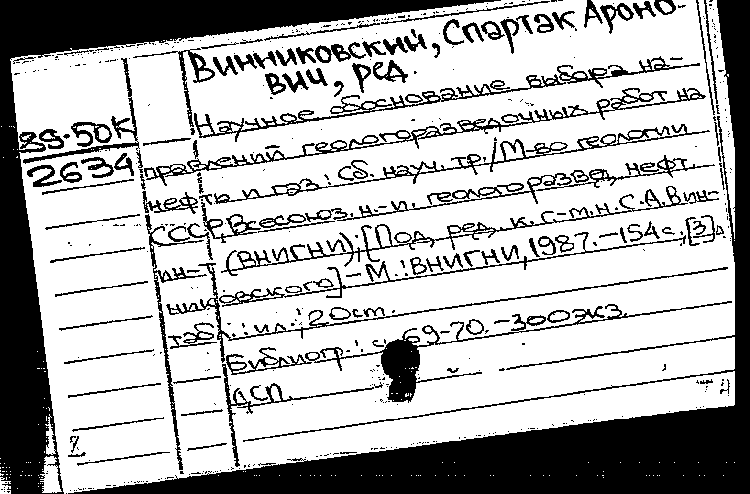 Винниковский, Спартак Ароно-
вич, ред.
89-50К
2634
Научное обоснование выбора на-
правлений геологоразведочных работ на
нефть и газ: Сб. науч. тр./М-во геологии
СССР, Всесоюз. н.-и. геологоразвед. нефт.
ин-т (ВНИГНИ); [Под ред. к. г.-м. н. С. А. Вин-
никовского] - М.: ВНИГНИ, 1987. - 154с., [3]л
табл.: ил.; 20см.
Библиогр.: с. 69-70. - 300экз.
ДСП.